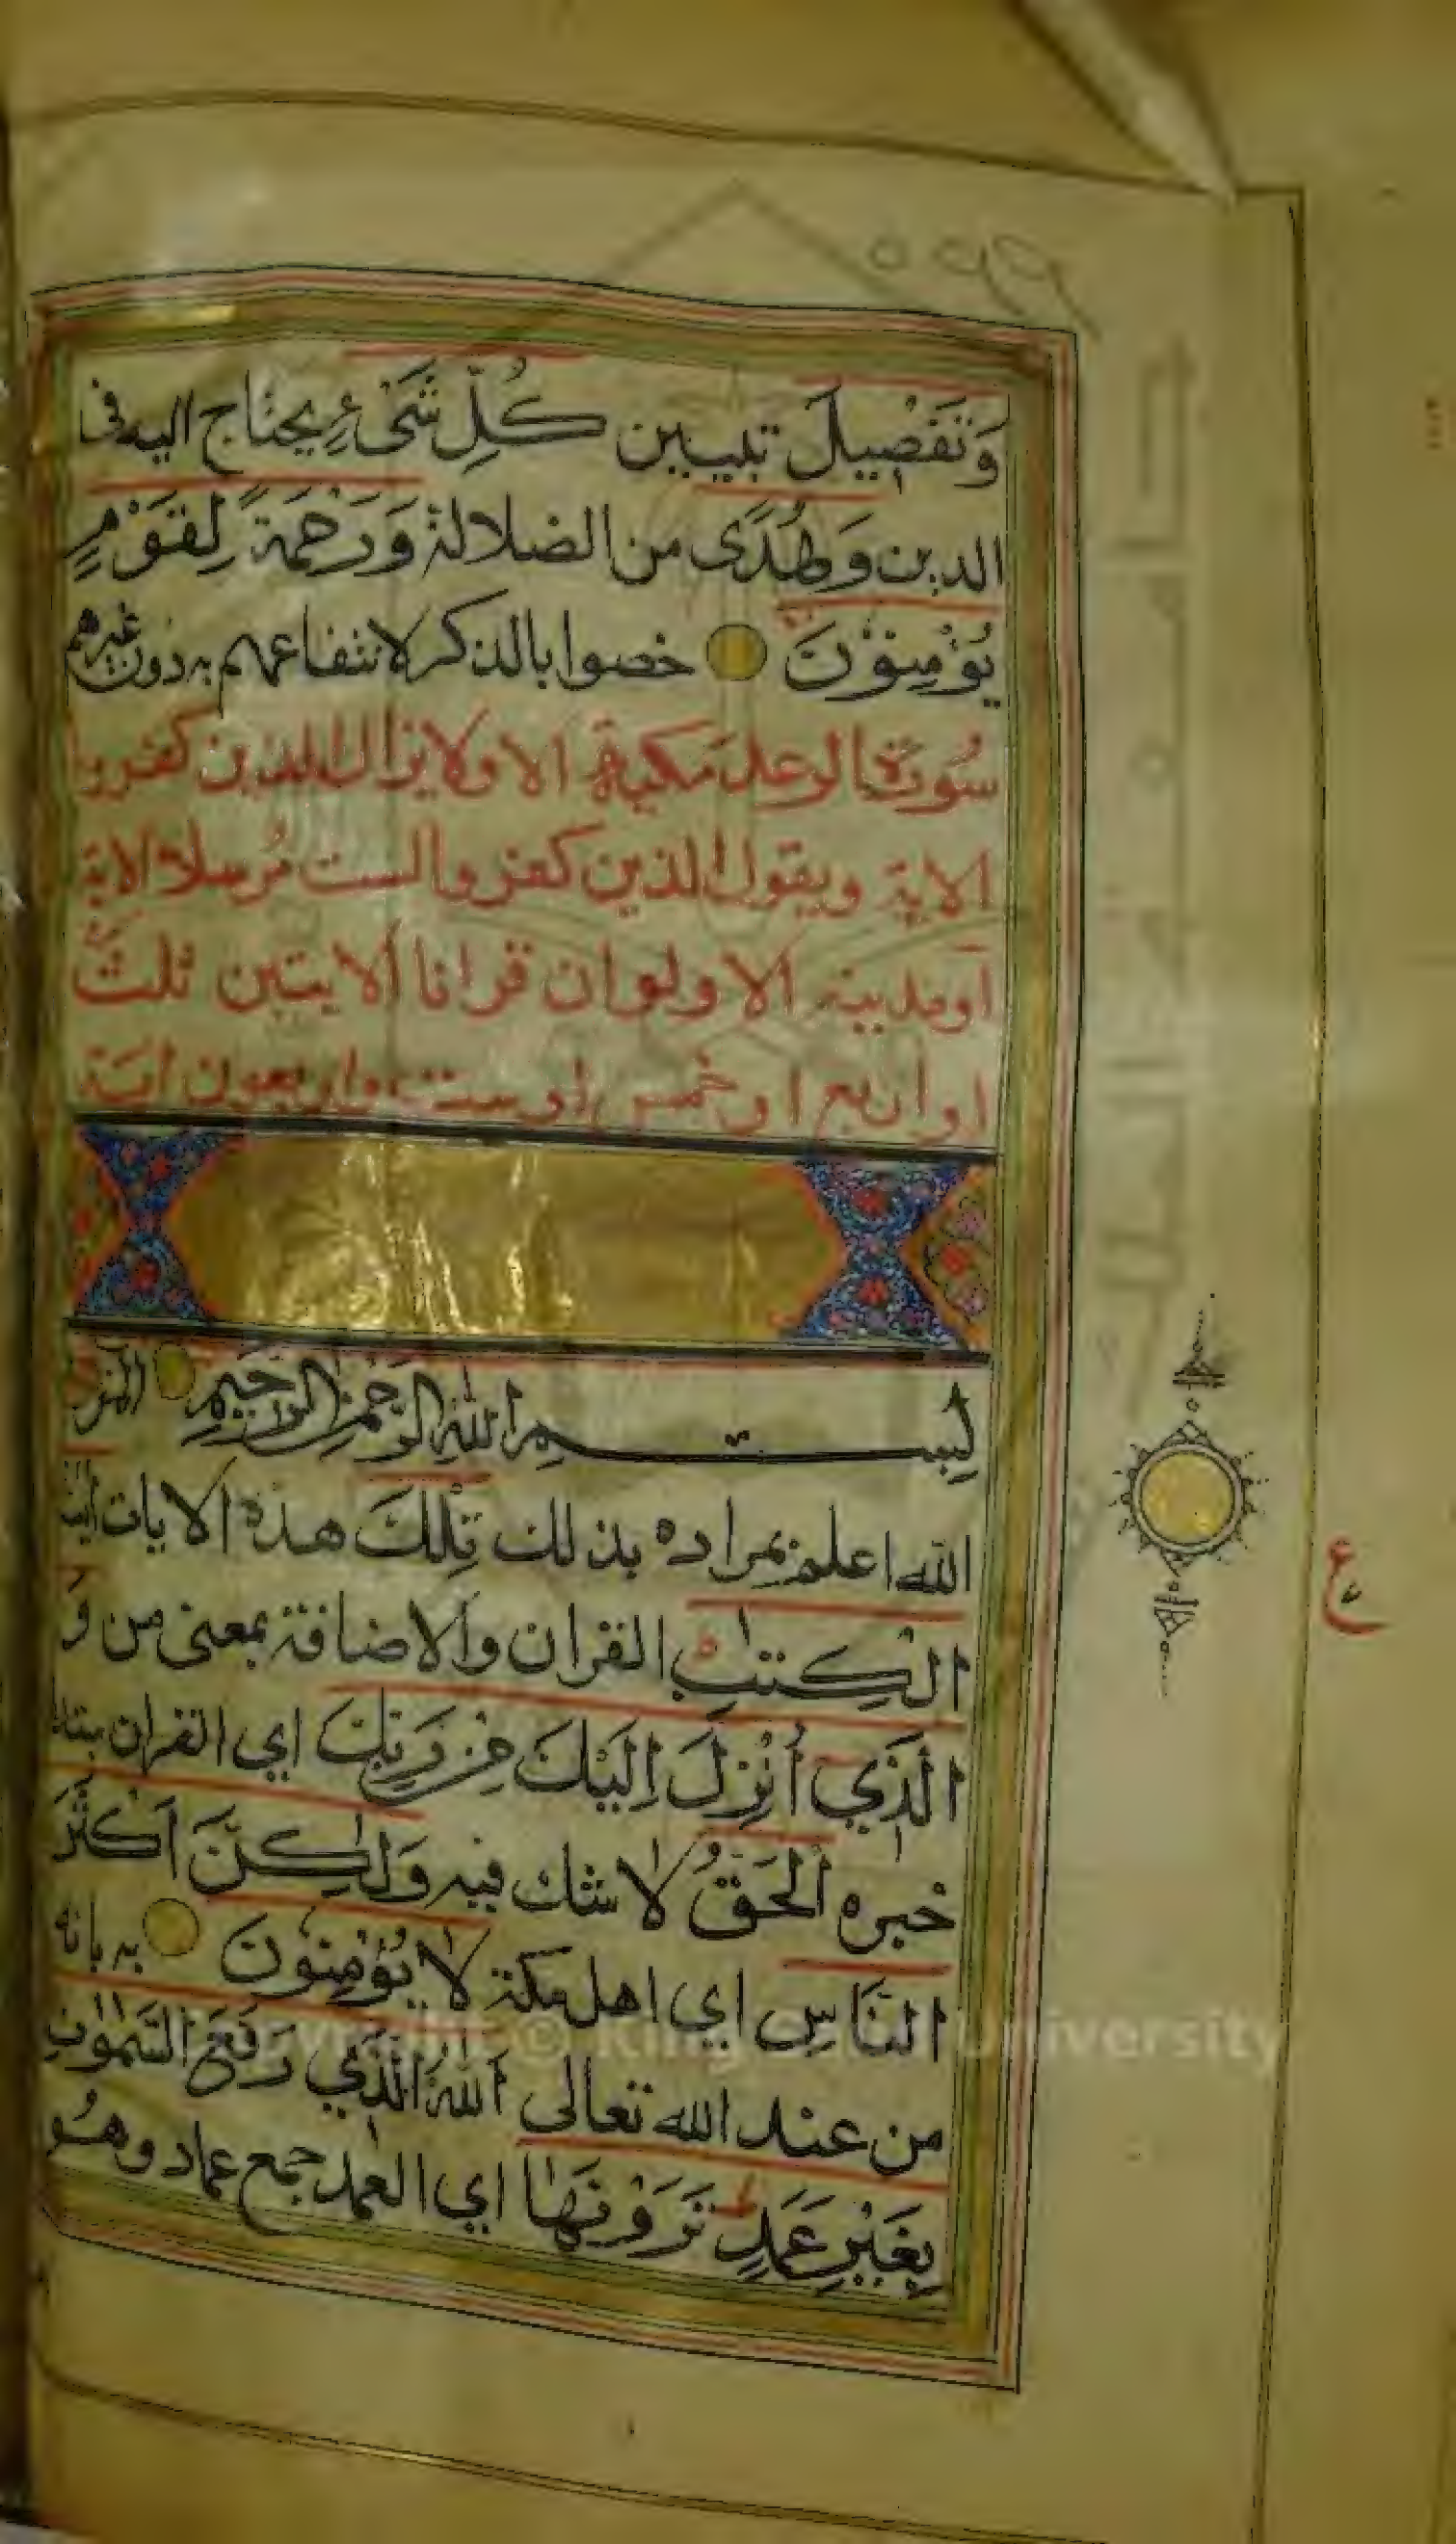 ٥٩٩
وَتَفْصِيلَ تبيين كُلِّ شَيْءٍ يحتاج اليه في
الدين وَهُدًى من الضلالة وَرَحْمَةً لِقَوْمٍ
يُؤْمِنُوْنَ خصوا بالذكر لانتفاعهم به دون غيرهم
سُورة الرعد مَكية الا ولا يزال الذين كفروا
الاية ويقول الذين كفروا لست مُرسلا الاية
او مدنية الا ولو ان قرانا الايتين ثلث
او اربع او خمس او ست واربعون اية
بِسْمِ اللهِ الرَّحْمٰنِ الرَّحِيمِ المر
الله اعلم بمراده بذلك تِلْكَ هذه الايات ايت
الْكِتٰبِ القران والاضافة بمعنى من وَ
الَّذِي أُنْزِلَ اِلَيْكَ مِنْ رَبِّكَ اي القران مبتدا
خبره الْحَقُّ لا شك فيه وَلٰكِنَّ اَكْثَرَ
النَّاسِ اي اهل مكة لَا يُؤْمِنُوْنَ به بانه
من عند الله تعالى اَللهُ الَّذِي رَفَعَ السَّمٰوٰتِ
بِغَيْرِ عَمَدٍ تَرَوْنَهَا اي العمد جمع عماد وهُو
ع
جامعة الملك
Copyright © King University